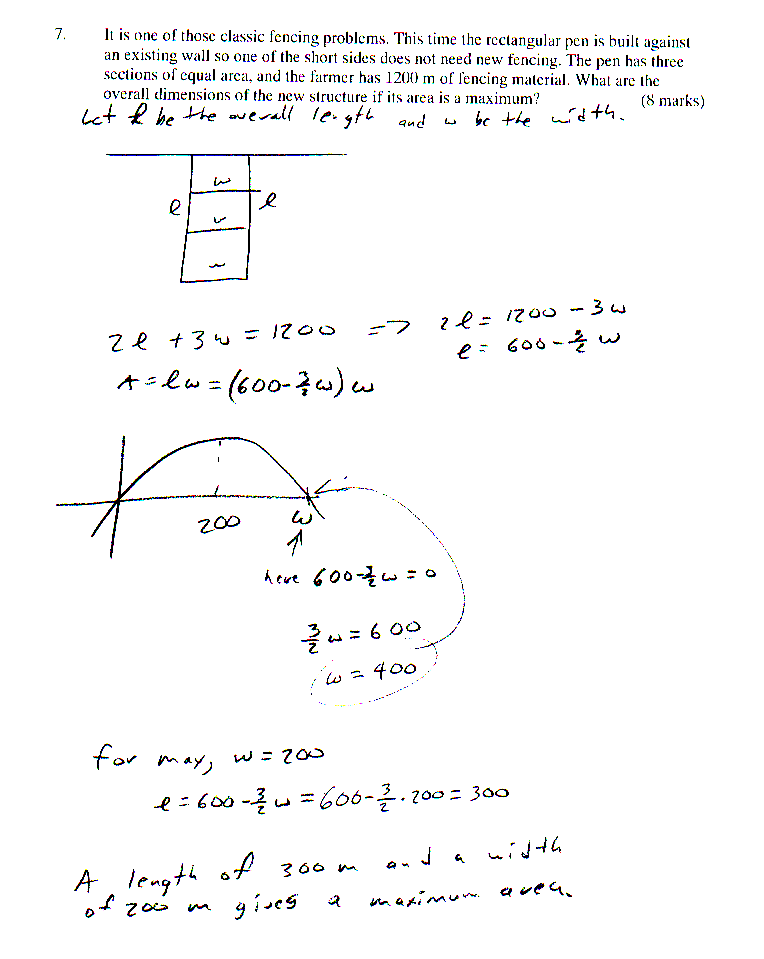 7. It is one of those classic fencing problems. This time the rectangular pen is built against
an existing wall so one of the short sides does not need new fencing. The pen has three
sections of equal area, and the farmer has 1200 m of fencing material. What are the
overall dimensions of the new structure if its area is a maximum? (8 marks)
Let l be the overall length and w be the width.
w
l w l
w
2l + 3w = 1200 => 2l = 1200 - 3w
l = 600 - 3/2 w
A = lw = (600 - 3/2 w) w
200 w
here 600 - 3/2 w = 0
3/2 w = 600
w = 400
for max, w = 200
l = 600 - 3/2 w = 600 - 3/2 . 200 = 300
A length of 300 m and a width
of 200 m gives a maximum area.